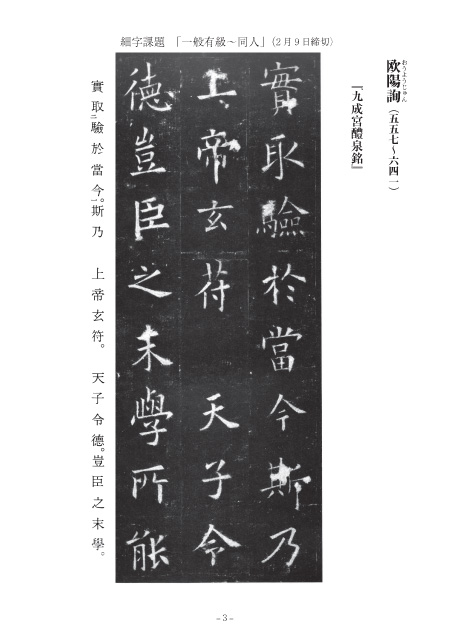 細字課題 「一般有級～同人」(2月9日締切)
欧陽詢(五五七～六四一)
おうようじゅん
『九成宮醴泉銘』
實取驗於當今斯乃
上帝玄苻 天子令
徳豈臣之末學所能
實取二驗於當今一。斯乃 上帝玄符。 天子令德。豈臣之末學。
- 3 -